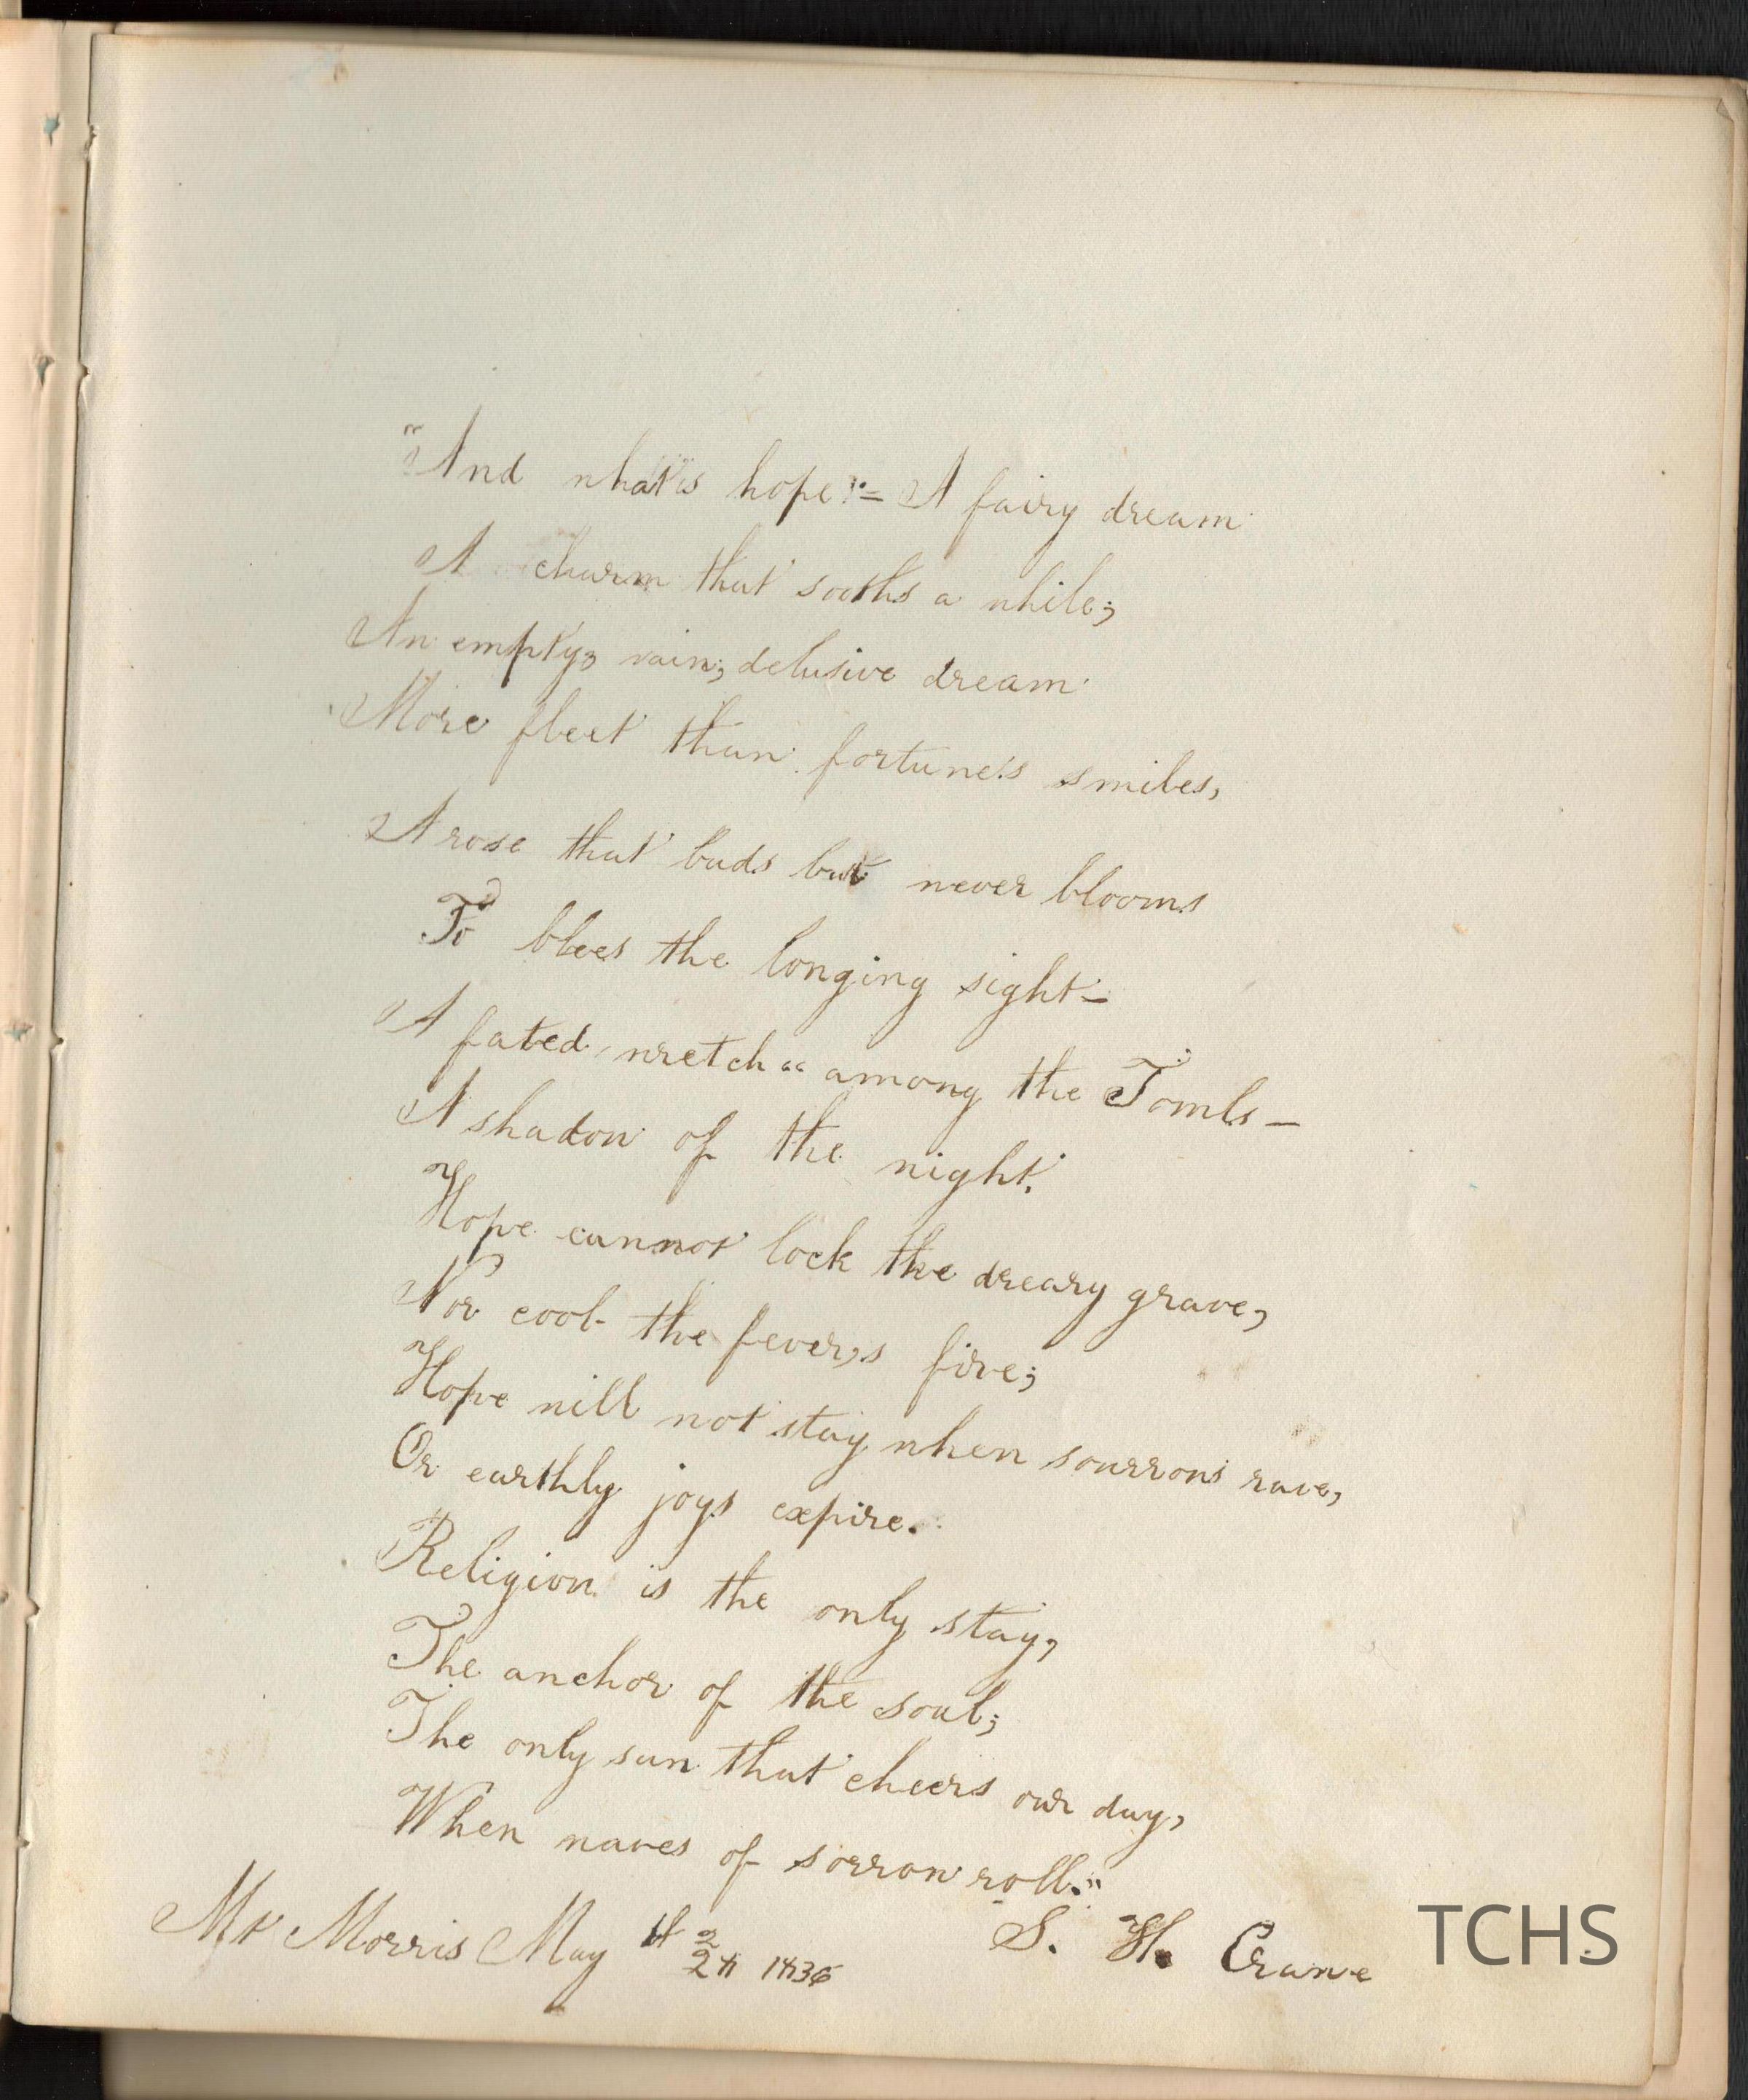 "And what is hope? = A fairy dream
A charm that sooths a while;
An empty, vain, delusive dream
More fleet than fortune's smiles,
A rose that buds but never blooms
To blees the longing sight –
A fated wretch " among the Tombs –
A shadow of the night.
Hope cannot lock the dreary grave,
Nor cool the fever,s fire;
Hope will not stay when sourrows rave,
Or earthly joys expire.
Religion is the only stay,
The anchor of the soul;
The only sun that cheers our day,
When waves of sorrow roll."
Mt Morris May 1836
S. H. Crane
TCHS